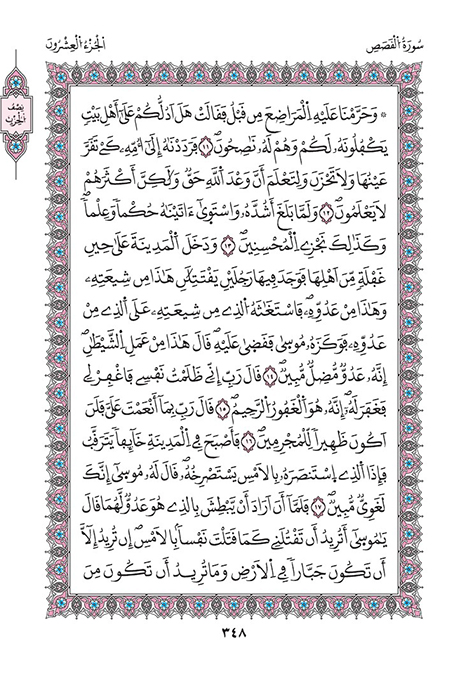 سُورَةُ الْقَصَصِ
الْجُزْءُ الْعِشْرُونَ
نِصْف الْحِزْب
* وَحَرَّمْنَا عَلَيْهِ اِ۬لْمَرَاضِعَ مِن قَبْلُ فَقَالَتْ هَلَ اَدُلُّكُمْ عَلَىٰٓ أَهْلِ بَيْتٖ
يَكْفُلُونَهُۥ لَكُمْ وَهُمْ لَهُۥ نَٰصِحُونَۖ ١١ فَرَدَدْنَٰهُ إِلَىٰٓ أُمِّهِۦ كَےْ تَقَرَّ
عَيْنُهَا وَلَا تَحْزَنَ وَلِتَعْلَمَ أَنَّ وَعْدَ اَ۬للَّهِ حَقّٞ وَلَٰكِنَّ أَكْثَرَهُمْ
لَا يَعْلَمُونَۖ ١٢ وَلَمَّا بَلَغَ أَشُدَّهُۥ وَاسْتَوَىٰٓ ءَاتَيْنَٰهُ حُكْماٗ وَعِلْماٗۖ
وَكَذَٰلِكَ نَجْزِے اِ۬لْمُحْسِنِينَۖ ١٣ وَدَخَلَ اَ۬لْمَدِينَةَ عَلَىٰ حِينِ
غَفْلَةٖ مِّنَ اَهْلِهَا فَوَجَدَ فِيهَا رَجُلَيْنِ يَقْتَتِلَٰنِ هَٰذَا مِن شِيعَتِهِۦ
وَهَٰذَا مِنْ عَدُوِّهِۦۖ فَاسْتَغَٰثَهُ اُ۬لذِے مِن شِيعَتِهِۦ عَلَى اَ۬لذِے مِنْ
عَدُوِّهِۦ فَوَكَزَهُۥ مُوسَىٰ فَقَضَىٰ عَلَيْهِۖ قَالَ هَٰذَا مِنْ عَمَلِ اِ۬لشَّيْطَٰنِۖ
إِنَّهُۥ عَدُوّٞ مُّضِلّٞ مُّبِينٞۖ ١٤ قَالَ رَبِّ إِنِّے ظَلَمْتُ نَفْسِے فَاغْفِرْ لِے
فَغَفَرَ لَهُۥٓۖ إِنَّهُۥ هُوَ اَ۬لْغَفُورُ اُ۬لرَّحِيمُۖ ١٥ قَالَ رَبِّ بِمَآ أَنْعَمْتَ عَلَيَّ فَلَنَ
اَكُونَ ظَهِيراٗ لِّلْمُجْرِمِينَۖ ١٦ فَأَصْبَحَ فِے اِ۬لْمَدِينَةِ خَآئِفاٗ يَتَرَقَّبُ
فَإِذَا اَ۬لذِے اِ۪سْتَنصَرَهُۥ بِالَامْسِ يَسْتَصْرِخُهُۥۖ قَالَ لَهُۥ مُوسَىٰٓ إِنَّكَ
لَغَوِيّٞ مُّبِينٞۖ ١٧ فَلَمَّآ أَنَ اَرَادَ أَنْ يَّبْطِشَ بِالذِے هُوَ عَدُوّٞ لَّهُمَا قَالَ
يَٰمُوسَىٰٓ أَتُرِيدُ أَن تَقْتُلَنِے كَمَا قَتَلْتَ نَفْساَۢ بِالَامْسِۖ إِن تُرِيدُ إِلَّآ
أَن تَكُونَ جَبَّاراٗ فِے اِ۬لَارْضِ وَمَا تُرِيدُ أَن تَكُونَ مِنَ
٣٤٨